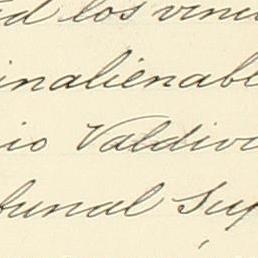 ed los vincu
inalienabl
io Valdivi
bunal Sup